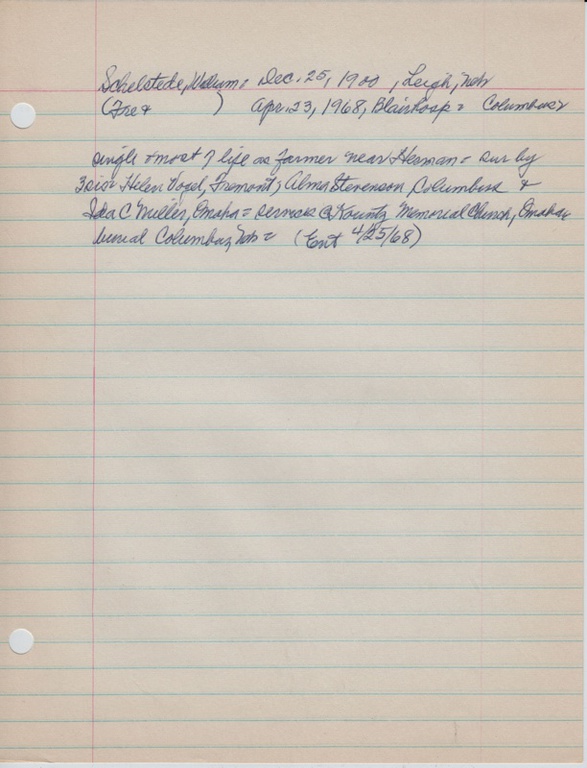 Schelstede, William = Dec. 25, 1900 , Leigh, Neb
(Fre & ) Apr. 23, 1968, Blair Hosp = Columbus
single & most of life as farmer near Herman = sur by
3 sis = Helen Vogel, Fremont, Alma Stevenson Columbus &
Ida C Miller, Omaha = services @ Kountz Memorial Church, Omaha &
burial Columbus, Neb = (Ent 4/25/68)